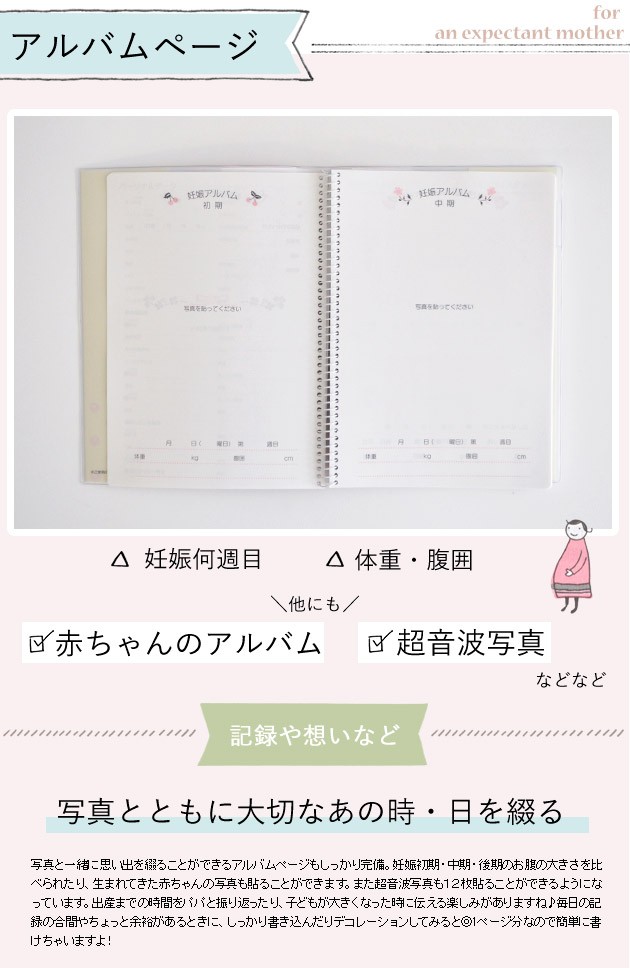 for
an expectant mother
アルバムページ
妊娠アルバム
初期
写真を貼ってください
月 日( 曜日) 第 週目
体重 kg 腹囲 cm
妊娠アルバム
中期
写真を貼ってください
月 日( 曜日) 第 週目
体重 kg 腹囲 cm
△ 妊娠何週目 △ 体重・腹囲
＼他にも／
☑赤ちゃんのアルバム ☑超音波写真
などなど
記録や想いなど
写真とともに大切なあの時・日を綴る
写真と一緒に思い出を綴ることができるアルバムページもしっかり完備。妊娠初期・中期・後期のお腹の大きさを比
べられたり、生まれてきた赤ちゃんの写真も貼ることができます。また超音波写真も12枚貼ることができるようにな
っています。出産までの時間をパパと振り返ったり、子どもが大きくなった時に伝える楽しみがありますね♪毎日の記
録の合間やちょっと余裕があるときに、しっかり書き込んだりデコレーションしてみると◎1ページ分なので簡単に書
けちゃいますよ！